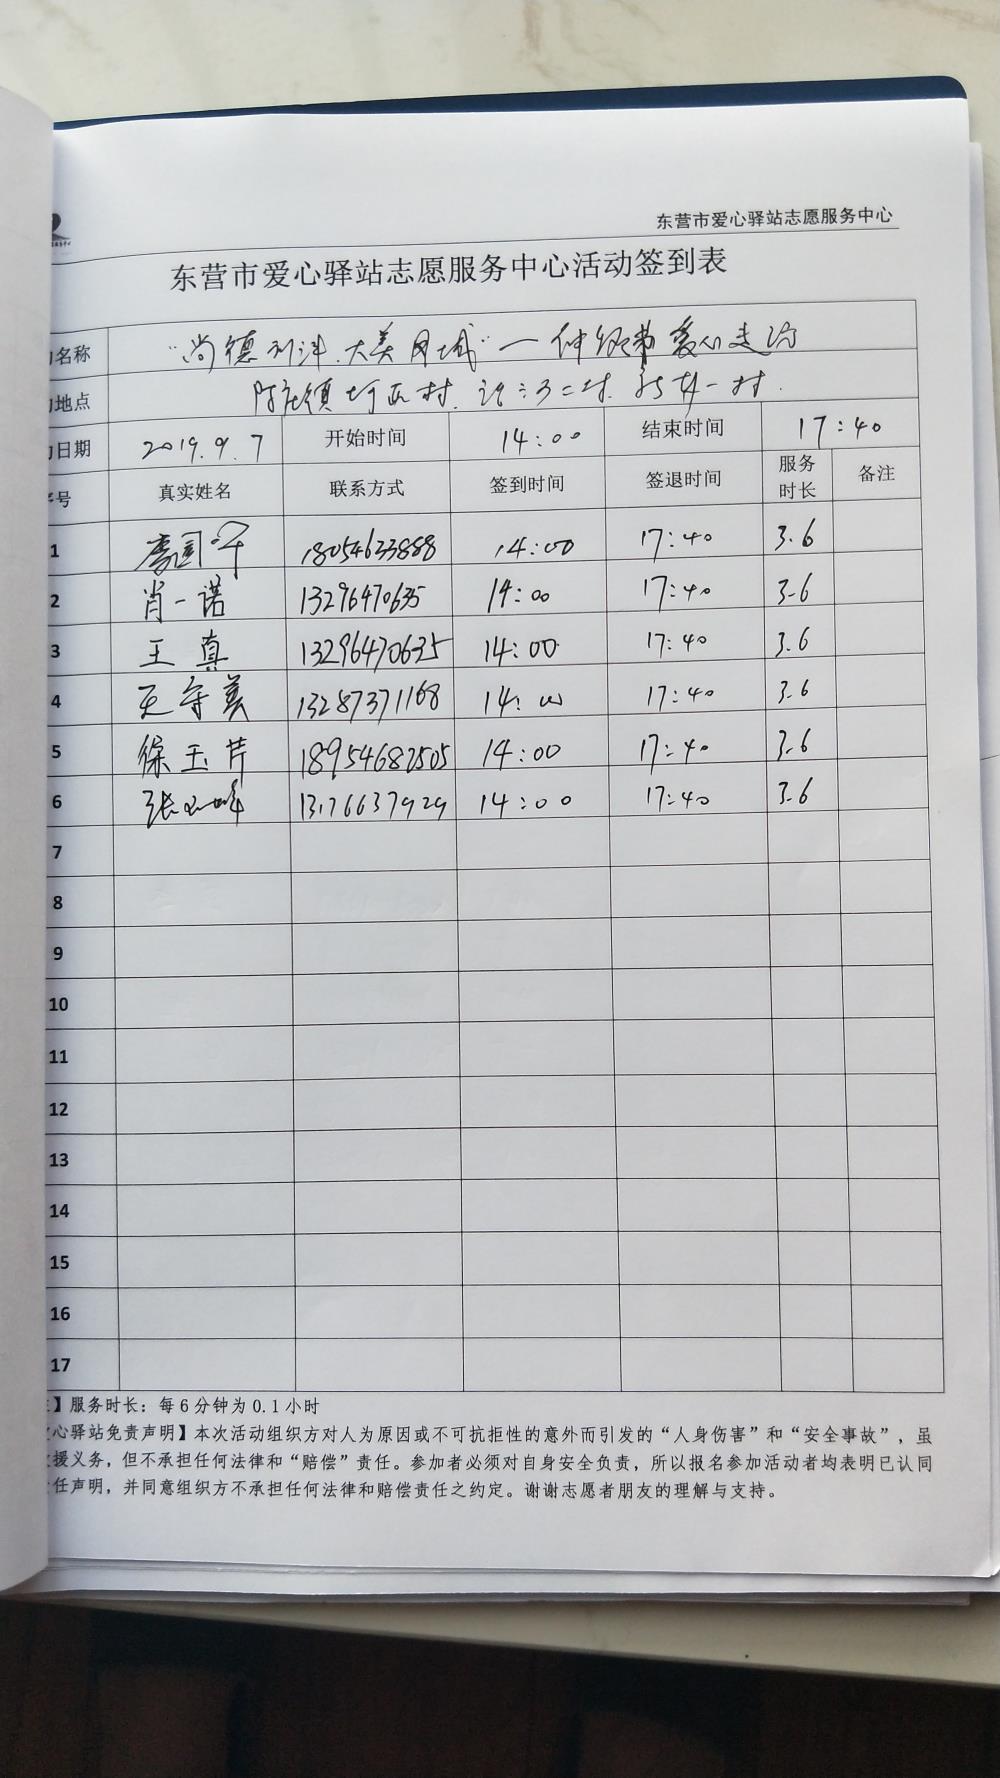 东营市爱心驿站志愿服务中心
东营市爱心驿站志愿服务中心活动签到表
名称 "尚德利津.大美凤城"一 爱心走访
地点 陈庄镇 村. 二村. 一村.
日期 2019.9.7 开始时间 14:00 结束时间 17:40
号 真实姓名 联系方式 签到时间 签退时间 服务时长 备注
1 李国平 18054633888 14:00 17:40 3.6
2 肖一诺 13296470635 14:00 17:40 3.6
3 王真 13296470635 14:00 17:40 3.6
4 守美 13287371168 14:00 17:40 3.6
5 徐玉芹 18954682505 14:00 17:40 3.6
6 张 峰 13176637929 14:00 17:40 3.6
7
8
9
10
11
12
13
14
15
16
17
】服务时长：每6分钟为0.1小时
心驿站免责声明】本次活动组织方对人为原因或不可抗拒性的意外而引发的“人身伤害”和“安全事故”，虽
援义务，但不承担任何法律和“赔偿”责任。参加者必须对自身安全负责，所以报名参加活动者均表明已认同
任声明，并同意组织方不承担任何法律和赔偿责任之约定。谢谢志愿者朋友的理解与支持。